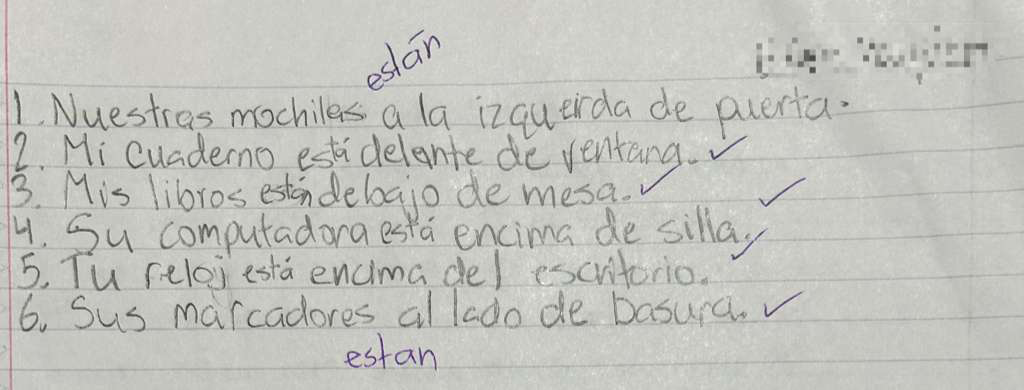 están
1. Nuestras mochilas a la izqueirda de puerta.
2. Mi cuaderno está delante de ventana. ✓
3. Mis libros están debajo de mesa. ✓
4. Su computadora está encima de silla. ✓
5. Tu reloj está encima del escritorio. ✓
6. Sus marcadores al lado de basura. ✓
estan